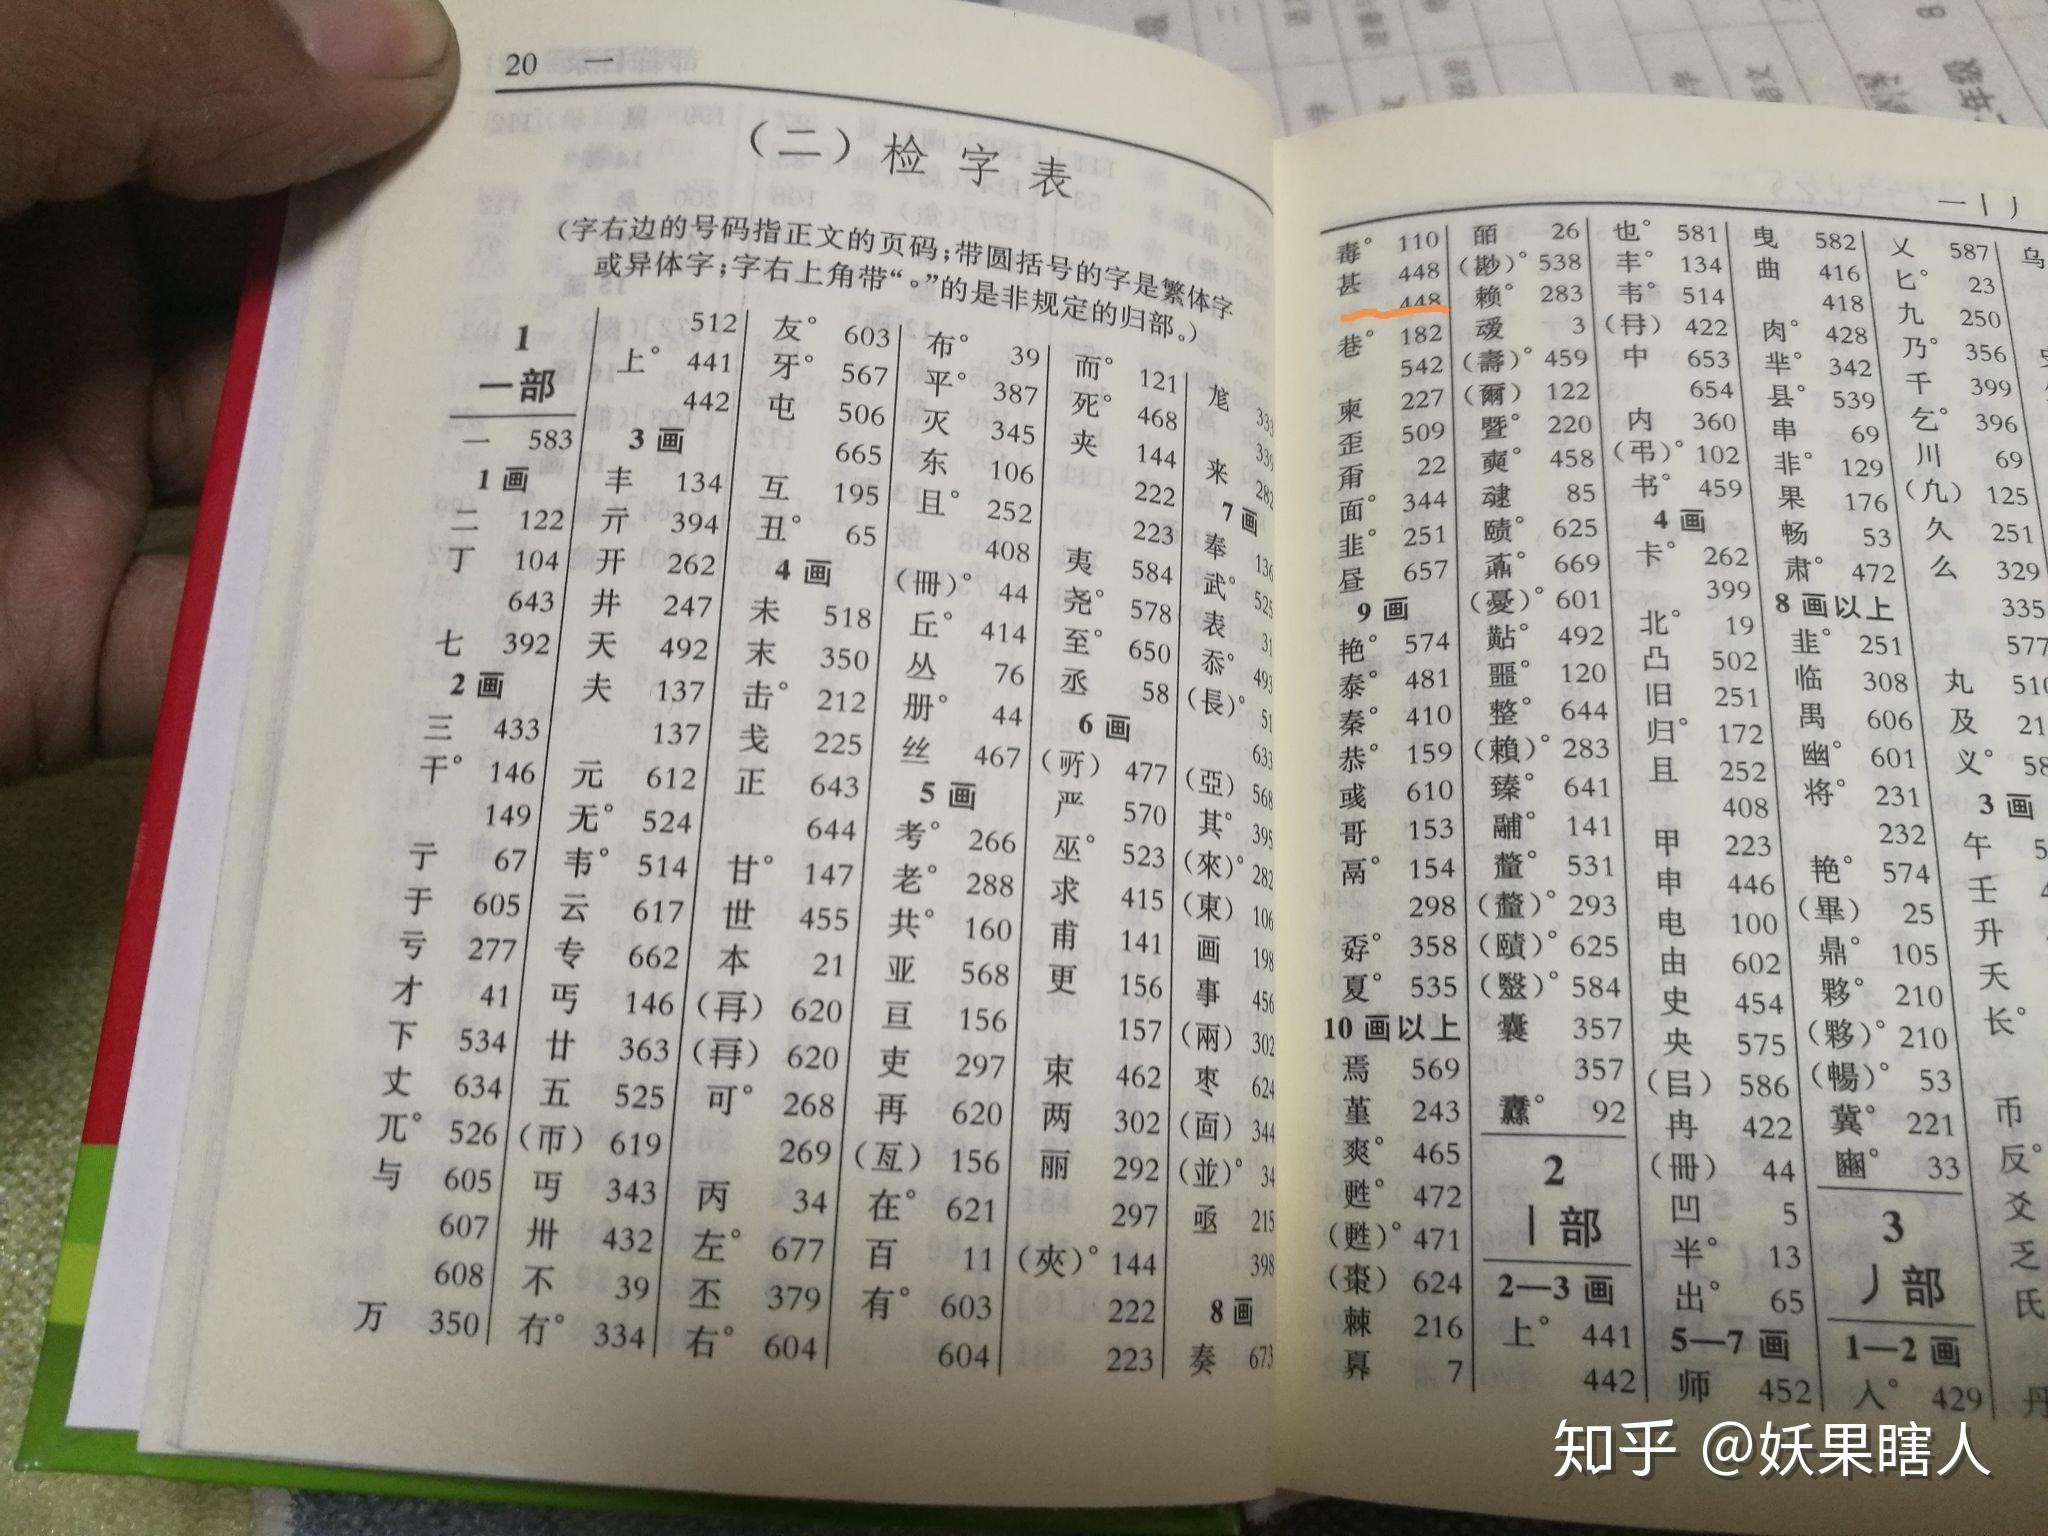 20 一
(二)检字表
(字右边的号码指正文的页码;带圆括号的字是繁体字
或异体字;字右上角带“°”的是非规定的归部。)
1
一部
一 583
1画
二 122
丁 104
643
七 392
2画
三 433
干° 146
149
亍 67
于 605
亏 277
才 41
下 534
丈 634
兀° 526
与 605
607
608
万 350
512
上° 441
442
3画
丰 134
亓 394
开 262
井 247
天 492
夫 137
137
元 612
无° 524
韦° 514
云 617
专 662
丐 146
廿 363
五 525
(帀) 619
丏 343
卅 432
不 39
冇° 334
友° 603
牙° 567
屯 506
665
互 195
丑° 65
4画
未 518
末 350
击° 212
戋 225
正 643
644
甘° 147
世 455
本 21
(再) 620
(再) 620
可° 268
269
丙 34
左° 677
丕 379
右° 604
布° 39
平° 387
灭 345
东 106
且° 252
408
(冊)° 44
丘° 414
丛 76
册° 44
丝 467
5画
考° 266
老° 288
共° 160
亚 568
亘 156
吏 297
再 620
(亙) 156
在° 621
百 11
有° 603
604
而° 121
死° 468
夹 144
222
223
夷 584
尧° 578
至° 650
丞 58
6画
(所) 477
严 570
巫° 523
求 415
甫 141
更 156
157
束 462
两 302
丽 292
297
(夾)° 144
222
223
尨 333
339
来 282
7画
奉 136
武° 525
表 31
忝° 493
(長)° 51
633
(亞) 568
其° 395
(來)° 282
(東) 106
画 198
事 456
(兩) 302
枣 624
(面) 344
(並)° 34
亟 215
398
8画
奏 673
一丨丿
毒° 110
甚 448
448
巷° 182
542
柬 227
歪 509
甭 22
面° 344
韭° 251
昼 657
9画
艳° 574
泰° 481
秦° 410
恭° 159
彧 610
哥 153
鬲° 154
298
孬° 358
夏° 535
10画以上
焉 569
堇 243
爽° 465
甦° 472
(甦)° 471
(棗) 624
棘 216
奡 7
皕 26
(尠)° 538
赖° 283
叆 3
(壽)° 459
(爾) 122
暨° 220
奭° 458
叇 85
赜° 625
鼒° 669
(憂)° 601
黇° 492
噩° 120
整° 644
(賴)° 283
臻° 641
黼° 141
釐° 531
(釐)° 293
(賾)° 625
(鷖)° 584
囊 357
357
纛° 92
2
丨部
2—3画
上° 441
442
也° 581
丰° 134
韦° 514
(冄) 422
中 653
654
内 360
(弔)° 102
书° 459
4画
卡° 262
399
北° 19
凸 502
旧 251
归° 172
且 252
408
甲 223
申 446
电 100
由 602
史 454
央 575
(㠯) 586
冉 422
(冊) 44
凹 5
半° 13
出° 65
5—7画
师 452
曳 582
曲 416
418
肉° 428
芈° 342
县° 539
串 69
非° 129
果 176
畅 53
肃° 472
8画以上
韭° 251
临 308
禺 606
幽° 601
将° 231
232
艳° 574
(畢) 25
鼎° 105
夥° 210
(夥)° 210
(暢)° 53
冀° 221
豳° 33
3
丿部
1—2画
人° 429
乂 587
匕° 23
九 250
乃° 356
千 399
乞° 396
川 69
(凣) 125
久 251
么 329
335
577
丸 510
及
义°
3画
午
壬
升
夭
长°
币
反°
爻
乏
氏
丹
知乎 @妖果瞎人